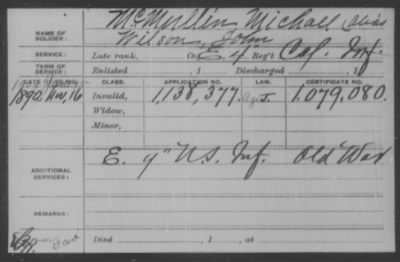 NAME OF SOLDIER: McMullen Michael alias
Wilson, John
SERVICE: Late rank, Co. E, 4" Reg't Cal. Inf.
TERM OF SERVICE: Enlisted , 1 Discharged , 1
DATE OF FILING. CLASS. APPLICATION NO. LAW. CERTIFICATE NO.
1892 Nov, 16 Invalid, 1,138,377. J. 1,079,080.
Widow,
Minor,
ADDITIONAL SERVICES: E. 4" U.S. Inf. Old War
REMARKS:
Died , 1 , at